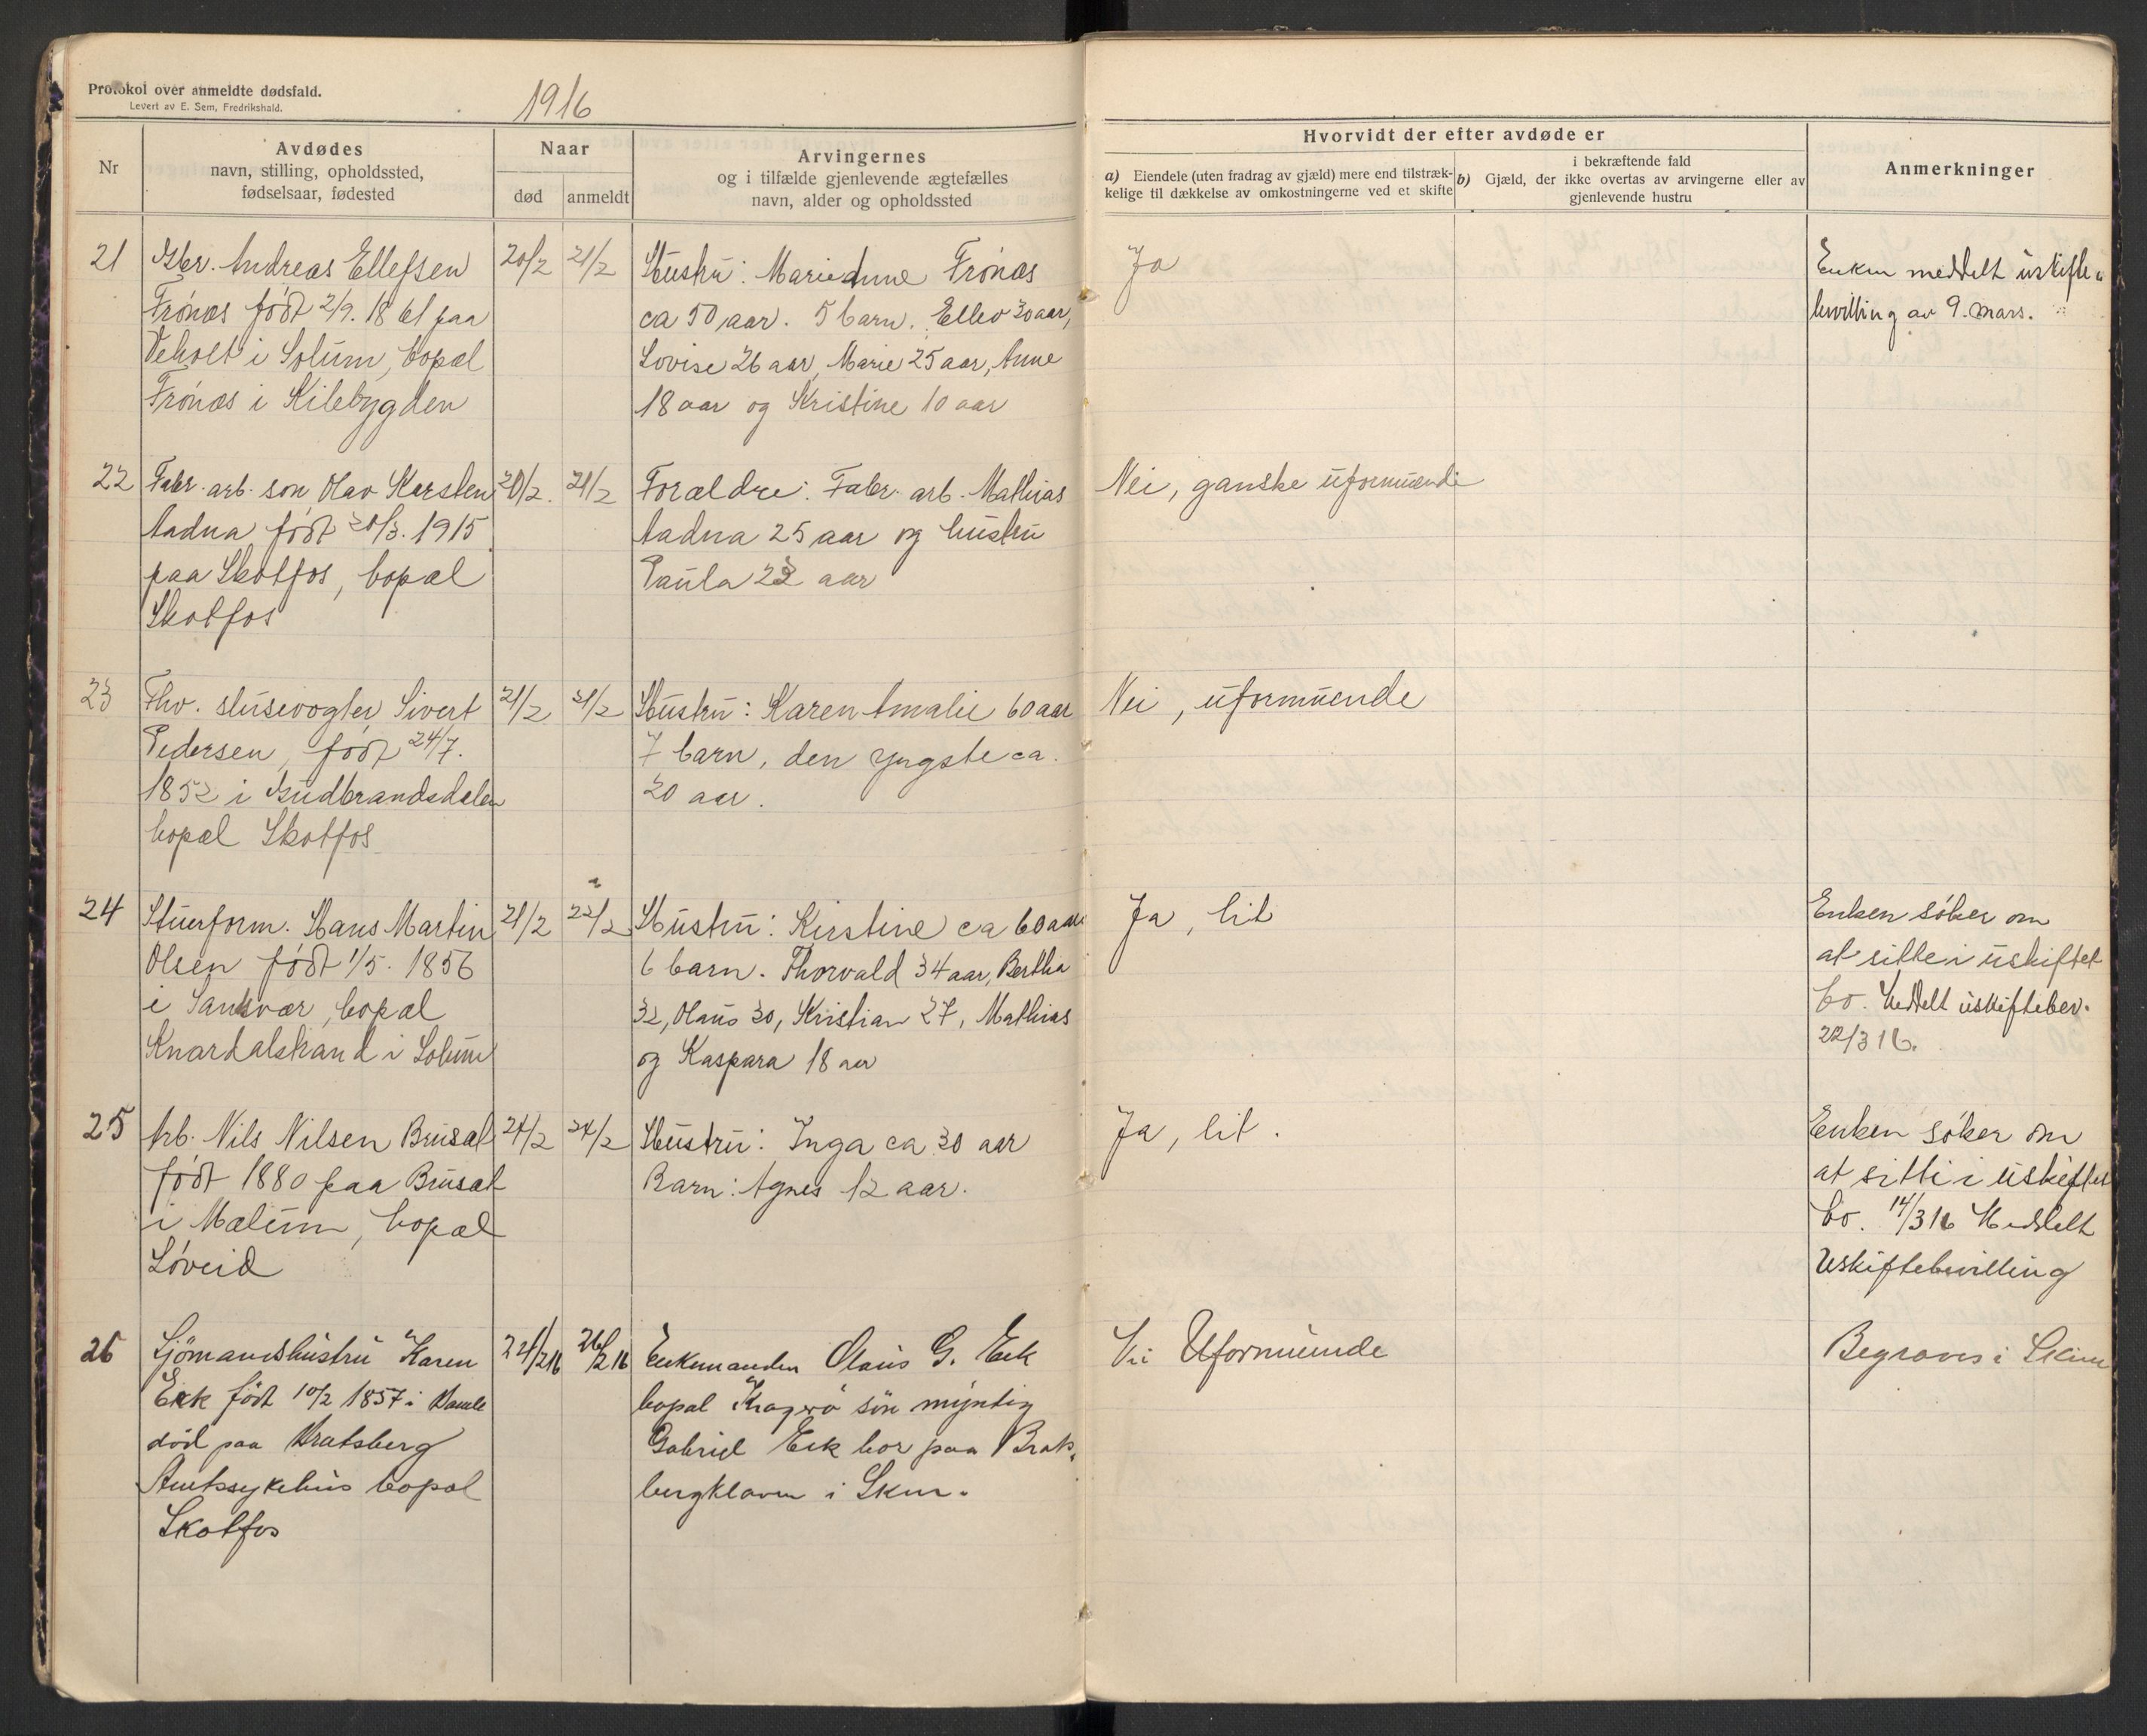 Protokol over anmeldte dødsfald.
Levert av E. Sem, Fredrikshald.
1916
Nr
Avdødes
navn, stilling, opholdssted,
fødselsaar, fødested
Naar
død
anmeldt
Arvingernes
og i tilfælde gjenlevende ægtefælles
navn, alder og opholdssted
Hvorvidt der efter avdøde er
a) Eiendele (uten fradrag av gjæld) mere end tilstræk-
kelige til dækkelse av omkostningerne ved et skifte
i bekræftende fald
b) Gjæld, der ikke overtas av arvingerne eller av
gjenlevende hustru
Anmerkninger
21
Gbr. Andreas Ellefsen
Frönæs född 2/9. 1861 paa
Veholt i Solum, bopæl
Frönæs i Kilebygden
20/2
21/2
Hustru: Marie Anne Frönæs
ca 50 aar. 5 barn. Ellev 30 aar,
Lovise 26 aar, Marie 25 aar, Anne
18 aar og Kristine 10 aar
Ja
Enken meddelt uskifte-
bevilling av 9. mars.
22
Fabr. arb. sön Olav Karsten
Aadna födt 20/3. 1915
paa Skotfos, bopæl
Skotfos
20/2.
21/2
Forældre: Fabr. arb. Mathias
Aadna 25 aar og hustru
Paula aar
Nei, ganske uformuende
23
Fhv. slusevogter Sivert
Pedersen, födt 24/7.
1852 i Gudbrandsdalen
bopæl Skotfos
21/2
21/2
Hustru: Karen Amalie 60 aar
7 barn, den yngste ca.
20 aar.
Nei, uformuende
24
Stuerform. Hans Martin
Olsen födt 1/5. 1856
i Sandsvær, bopæl
Knardalstrand i Solum
21/2
22/2
Hustru: Kirstine ca 60 aar
6 barn. Thorvald 34 aar, Bertha
32, Olaus 30, Kristian 27, Mathias
og Kaspara 18 aar
Ja, lit
Enken söker om
at sitte i uskiftet
bo. Meddelt uskiftebev.
22/3 16.
25
Arb. Nils Nilsen Brusal
födt 1880 paa Brusal
i Mælum, bopæl
Löveid
24/2
24/2
Hustru: Inga ca 30 aar
Barn: Agnes 12 aar.
Ja, lit.
Enken söker om
at sitte i uskiftet
bo. 14/3 16 Meddelt
Uskiftebevilling
26
Sjömandshustru Karen
Eek födt 10/2 1857 i Bamle
död paa Bratsberg
Amtssykehus bopæl
Skotfos
/2 16
26/2 16
Enkemanden Olaus G. Eek
bopæl Kragerö sön myndig
Gabriel Eek bor paa Brats-
bergkleven i Skien.
Nei Uformuende
Begraves i Skien